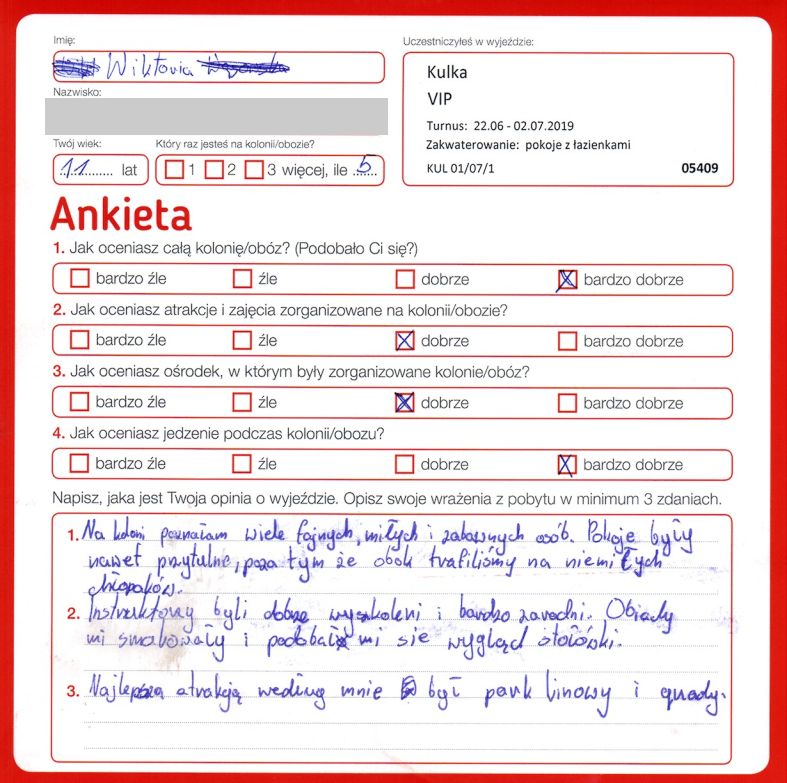 Imię:
Wiktoria
Uczestniczyłeś w wyjeździe:
Kulka
VIP
Turnus: 22.06 - 02.07.2019
Zakwaterowanie: pokoje z łazienkami
KUL 01/07/1 05409
Nazwisko:
Twój wiek: Który raz jesteś na kolonii/obozie?
11 lat 1 2 3 więcej, ile 5
Ankieta
1. Jak oceniasz całą kolonię/obóz? (Podobało Ci się?)
bardzo źle źle dobrze bardzo dobrze
2. Jak oceniasz atrakcje i zajęcia zorganizowane na kolonii/obozie?
bardzo źle źle dobrze bardzo dobrze
3. Jak oceniasz ośrodek, w którym były zorganizowane kolonie/obóz?
bardzo źle źle dobrze bardzo dobrze
4. Jak oceniasz jedzenie podczas kolonii/obozu?
bardzo źle źle dobrze bardzo dobrze
Napisz, jaka jest Twoja opinia o wyjeździe. Opisz swoje wrażenia z pobytu w minimum 3 zdaniach.
1. Na koloni poznałam wiele fajnych, miłych i zabawnych osób. Pokoje były
nawet przytulne, poza tym że obok trafiliśmy na niemiłych
chłopaków.
2. Instruktorzy byli dobrze wyszkoleni i bardzo zaradni. Obiady
mi smakowały i podobał mi sie wygląd stołówki.
3. Najlepszą atrakcją według mnie był park linowy i quady.